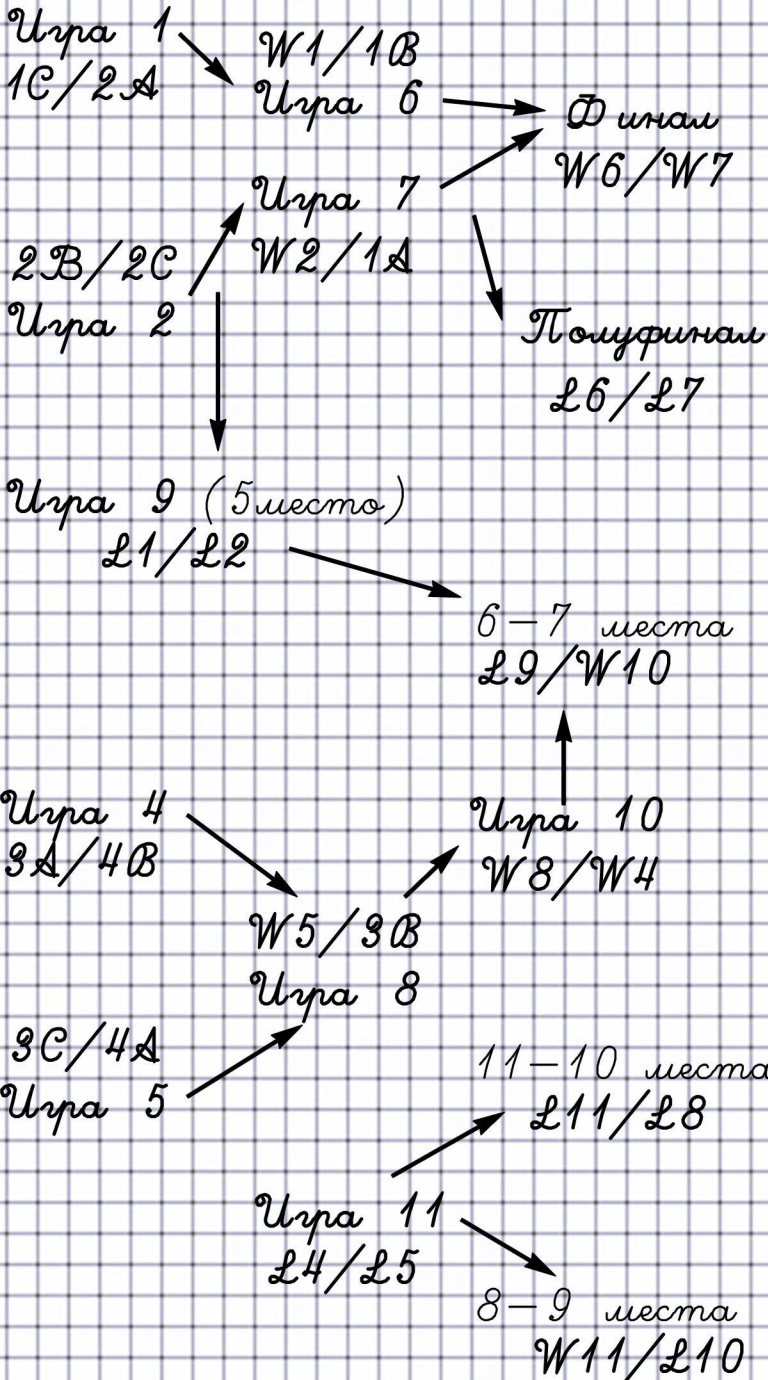 Игра 1
1C/2A
W1/1B
Игра 6
Финал
W6/W7
Игра 7
W2/1A
2B/2C
Игра 2
Полуфинал
L6/L7
Игра 9 (5место)
L1/L2
6-7 места
L9/W10
Игра 4
3A/4B
Игра 10
W8/W4
W5/3B
Игра 8
3C/4A
Игра 5
11-10 места
L11/L8
Игра 11
L4/L5
8-9 места
W11/L10